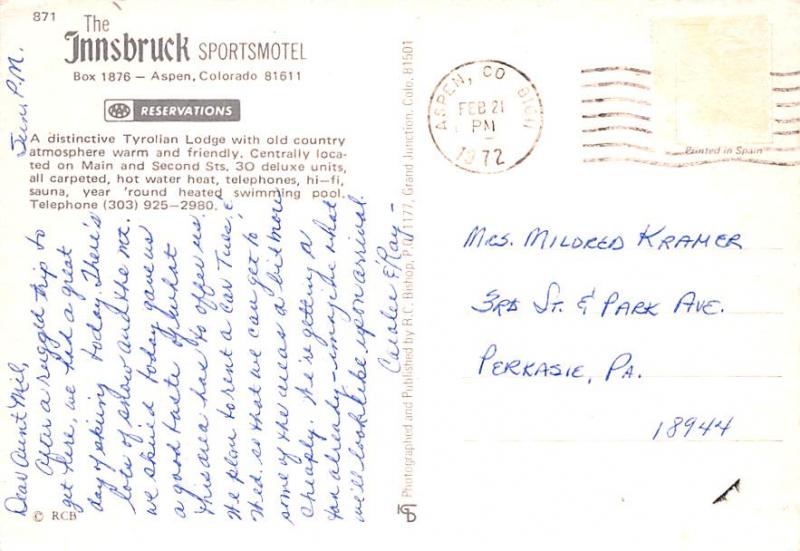 871
The
Innsbruck SPORTSMOTEL
Box 1876 — Aspen, Colorado 81611
AAA RESERVATIONS
A distinctive Tyrolian Lodge with old country
atmosphere warm and friendly. Centrally loca-
ted on Main and Second Sts. 30 deluxe units,
all carpeted, hot water heat, telephones, hi-fi,
sauna, year 'round heated swimming pool.
Telephone (303) 925-2980.
Sun. P.M.
Dear Aunt Mil,
After a rugged trip to
get here, we had a great
day of skiing today. There's
lots of snow and the mt.
we skied today gave us
a good taste of what
this area has to offer us.
We plan to rent a car Tues. &
Wed. so that we can get to
some of the areas a bit more
cheaply. We're getting a
tan already - imagine what
we'll look like upon arrival
Carolee & Ray -
© RCB
Photographed and Published by R.C. Bishop, P.O. 1177, Grand Junction, Colo. 81501
ASPEN, CO 81611
FEB 21
PM
1972
Printed in Spain
MRS. MILDRED KRAMER
3RD ST. & PARK AVE.
PERKASIE, PA.
18944